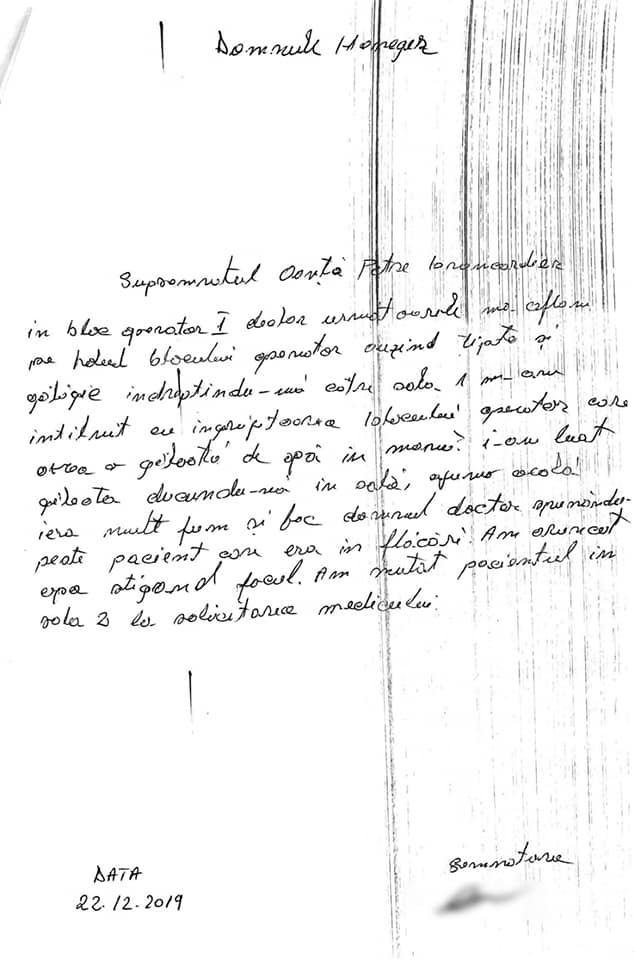 Domnule Maneger
Supsemnatul Oanță Petre brancardier
in bloc operator I declar urmatoarele ma aflam
pe holul blocului operator auzind tipate și
gălăgie indreptindu-mă catre sala 1 m-am
intilnit cu ingrijitoarea blocului operator care
avea o găleată de apă in mană? i-am luat
găleata ducandu-mă in sală, afumo acolo
iera mult fum și foc domnul doctor spunăndu-
peste pacient care era in flăcări. Am aruncat
apa stigand focul. Am mutat pacientul in
sala 2 la solicitarea medicului.
DATA
22.12.2019
Semnatura